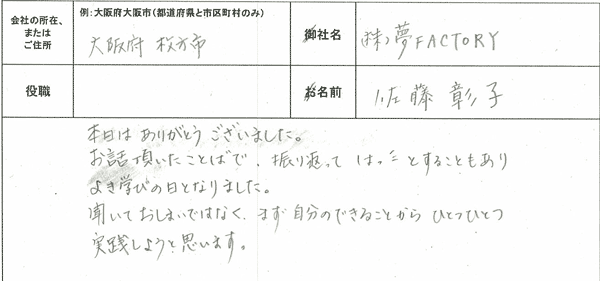 会社の所在、
または
ご住所
例：大阪府大阪市（都道府県と市区町村のみ）
大阪府 枚方市
御社名
(株)夢FACTORY
役職
お名前
佐藤 彰子
本日は ありがとう ございました。
お話頂いたことばで、振り返って はっ とすることもあり
よき学びの日となりました。
聞いておしまいではなく、まず自分のできることから ひとつひとつ
実践しようと思います。